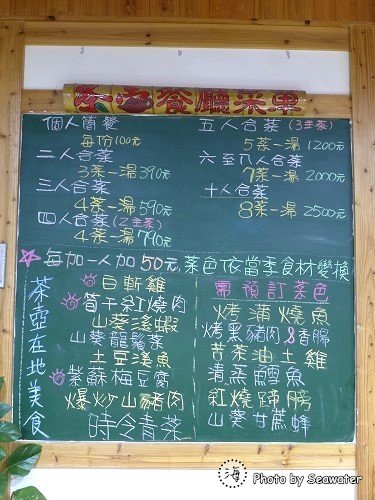 茶壺餐廳菜單
個人簡餐
每份100元
二人合菜
3菜一湯390元
三人合菜
4菜一湯590元
四人合菜(2主菜)
4菜一湯790元
五人合菜(3主菜)
5菜一湯1200元
六至八人合菜
7菜一湯2000元
十人合菜
8菜一湯2500元
每加一人加50元菜色依當季食材變換
茶壺在地美食
白斬雞
筍干紅燒肉
山葵溪蝦
山葵龍鬚菜
土豆溪魚
紫蘇梅豆腐
爆炒山豬肉
時令青菜
需預訂菜色
烤蒲燒魚
烤黑豬肉&香腸
苦茶油土雞
清蒸鱈魚
紅燒蹄膀
山葵甘蔗蜂
海 Photo by Seawater